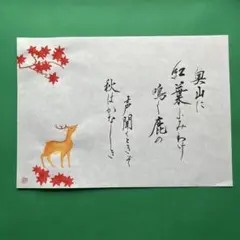 奥山に
紅葉ふみわけ
鳴く鹿の
声聞くときぞ
秋はかなしき